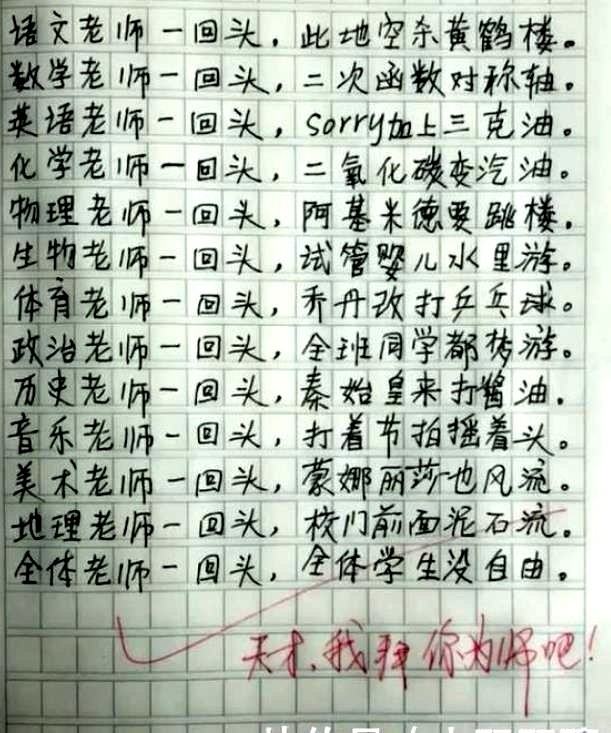 语文老师一回头，此地空余黄鹤楼。
数学老师一回头，二次函数对称轴。
英语老师一回头，sorry加上三克油。
化学老师一回头，二氧化碳变汽油。
物理老师一回头，阿基米德要跳楼。
生物老师一回头，试管婴儿水里游。
体育老师一回头，乔丹改打乒乓球。
政治老师一回头，全班同学都梦游。
历史老师一回头，秦始皇来打酱油．
音乐老师一回头，打着节拍摇着头。
美术老师一回头，蒙娜丽莎也风流。
地理老师一回头，校门前面泥石流。
全体老师一回头，全体学生没自由。
天才、我拜你为师吧！